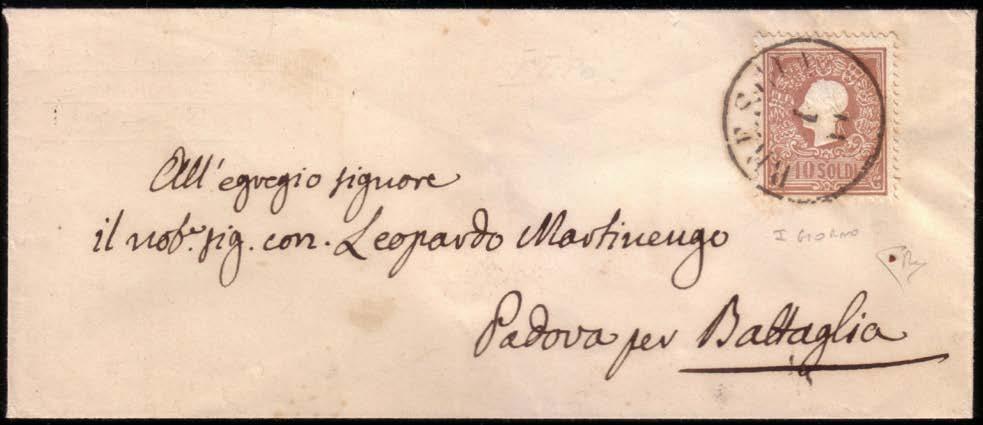 10 SOLDI
All'egregio signore
il nobe. sig. con. Leopardo Martinengo
I GIORNO
Padova per Battaglia